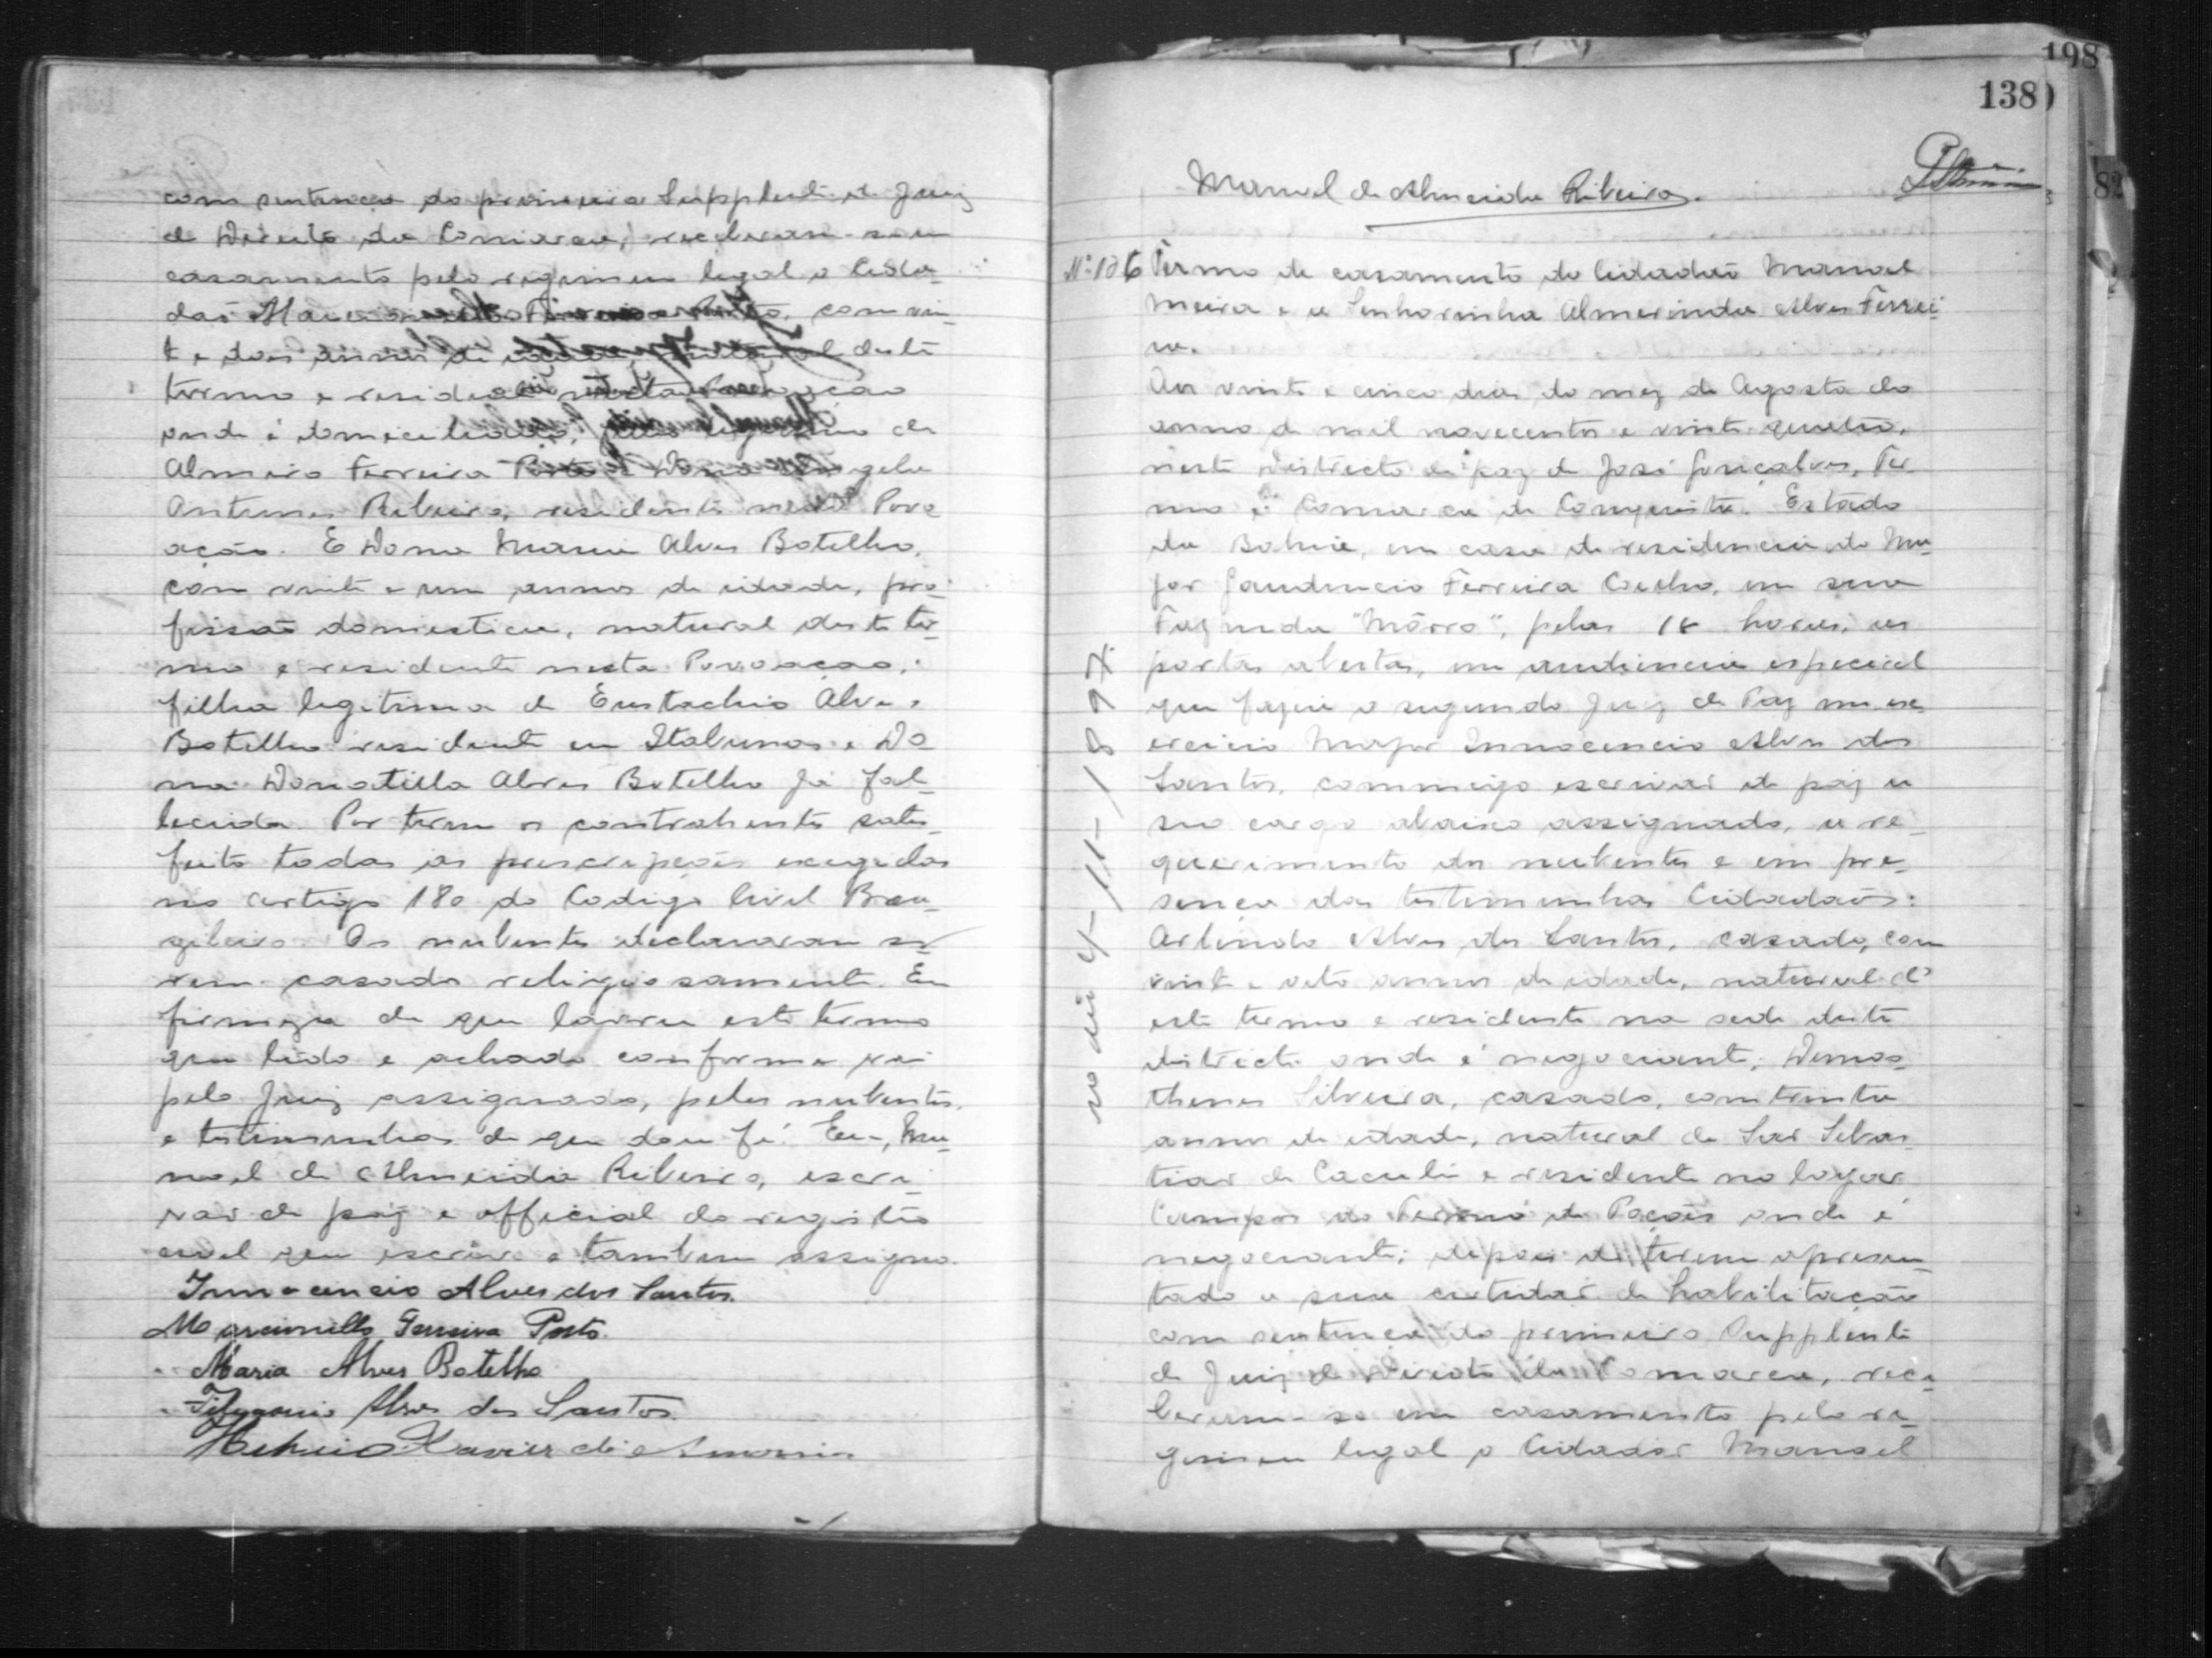 com sentença do primeiro Supplente de Juiz
de Direito da Comarca, receberam-se em
casamento pelo regimen legal o Cida-
dão Ferreira Porto, com vin-
te e dois annos de idade, natural deste
termo e residente nesta Povoação
onde é domiciliado, filho legitimo de
Almiro Ferreira Porto e Dona Angela
Antunes Ribeiro, residentes nesta Povo
ação. E Dona Maria Alves Botelho,
com vinte e um annos de idade, pro-
fissão domestica, natural deste ter-
mo e residente nesta Povoação,
filha legitima de Eustachio Alves
Botelho residente em Itabuna e Do
na Donatilla Alves Botelho já fal-
lecida. Por terem os contrahentes satis-
feito todas as prescripções exigidas
no artigo 180 do Codigo Civil Bra-
zileiro. Os nubentes declararam se-
rem casados religiosamente. Em
firmeza de que lavrei este termo
que lido e achado conforme vai
pelo Juiz assignado, pelos nubentes,
e testimunhas de que dou fé. Eu, Ma-
noel de Almeida Ribeiro, escri-
vão de paz e official do registro
civel que escrevi e tambem assigno.
Innocencio Alves dos Santos.
Marcionillo Ferreira Porto.
Maria Alves Botelho
Alves dos Santos
Xavier de
198
138
82
Manoel de Almeida Ribeiro.
Nº 106 Termo de casamento do Cidadão Manoel
Meira e a Senhorinha Almerinda Alves Ferrei-
ra.
Aos vinte e cinco dias do mez de Agosto do
anno de mil novecentos e vinte quatro,
neste Districto de paz de José Gonçalves, Ter-
mo e Comarca de Conquista. Estado
da Bahia, em casa de residencia do Ma-
jor Gaudencio Ferreira Coelho, em sua
Fazenda "Môrro", pelas horas, as
portas abertas, em audiencia especial
que fazia o segundo Juiz de Paz em ex-
ercicio Major Innocencio Alves dos
Santos, commigo escrivão de paz a
seo cargo abaixo assignado, a re-
querimento dos nubentes e em pre-
sença das testimunhas Cidadãos:
Arlindo Alves dos Santos, casado, com
vinte e oito annos de idade, natural d'
este termo e residente na sede deste
districto onde é negociante; Demos-
thenes Silveira, casado, com trinta
annos de idade, natural de São Sebas-
tião de Caculé e residente no logar
Campos do Termo de Poções onde é
negociante; depois de terem apresen-
tado a sua certidão de habilitação
com sentença do primeiro Supplente
de Juiz de Direito da Comarca, rece-
beram-se em casamento pelo re-
gimen legal o Cidadão Manoel
no dia 4-11-1897.